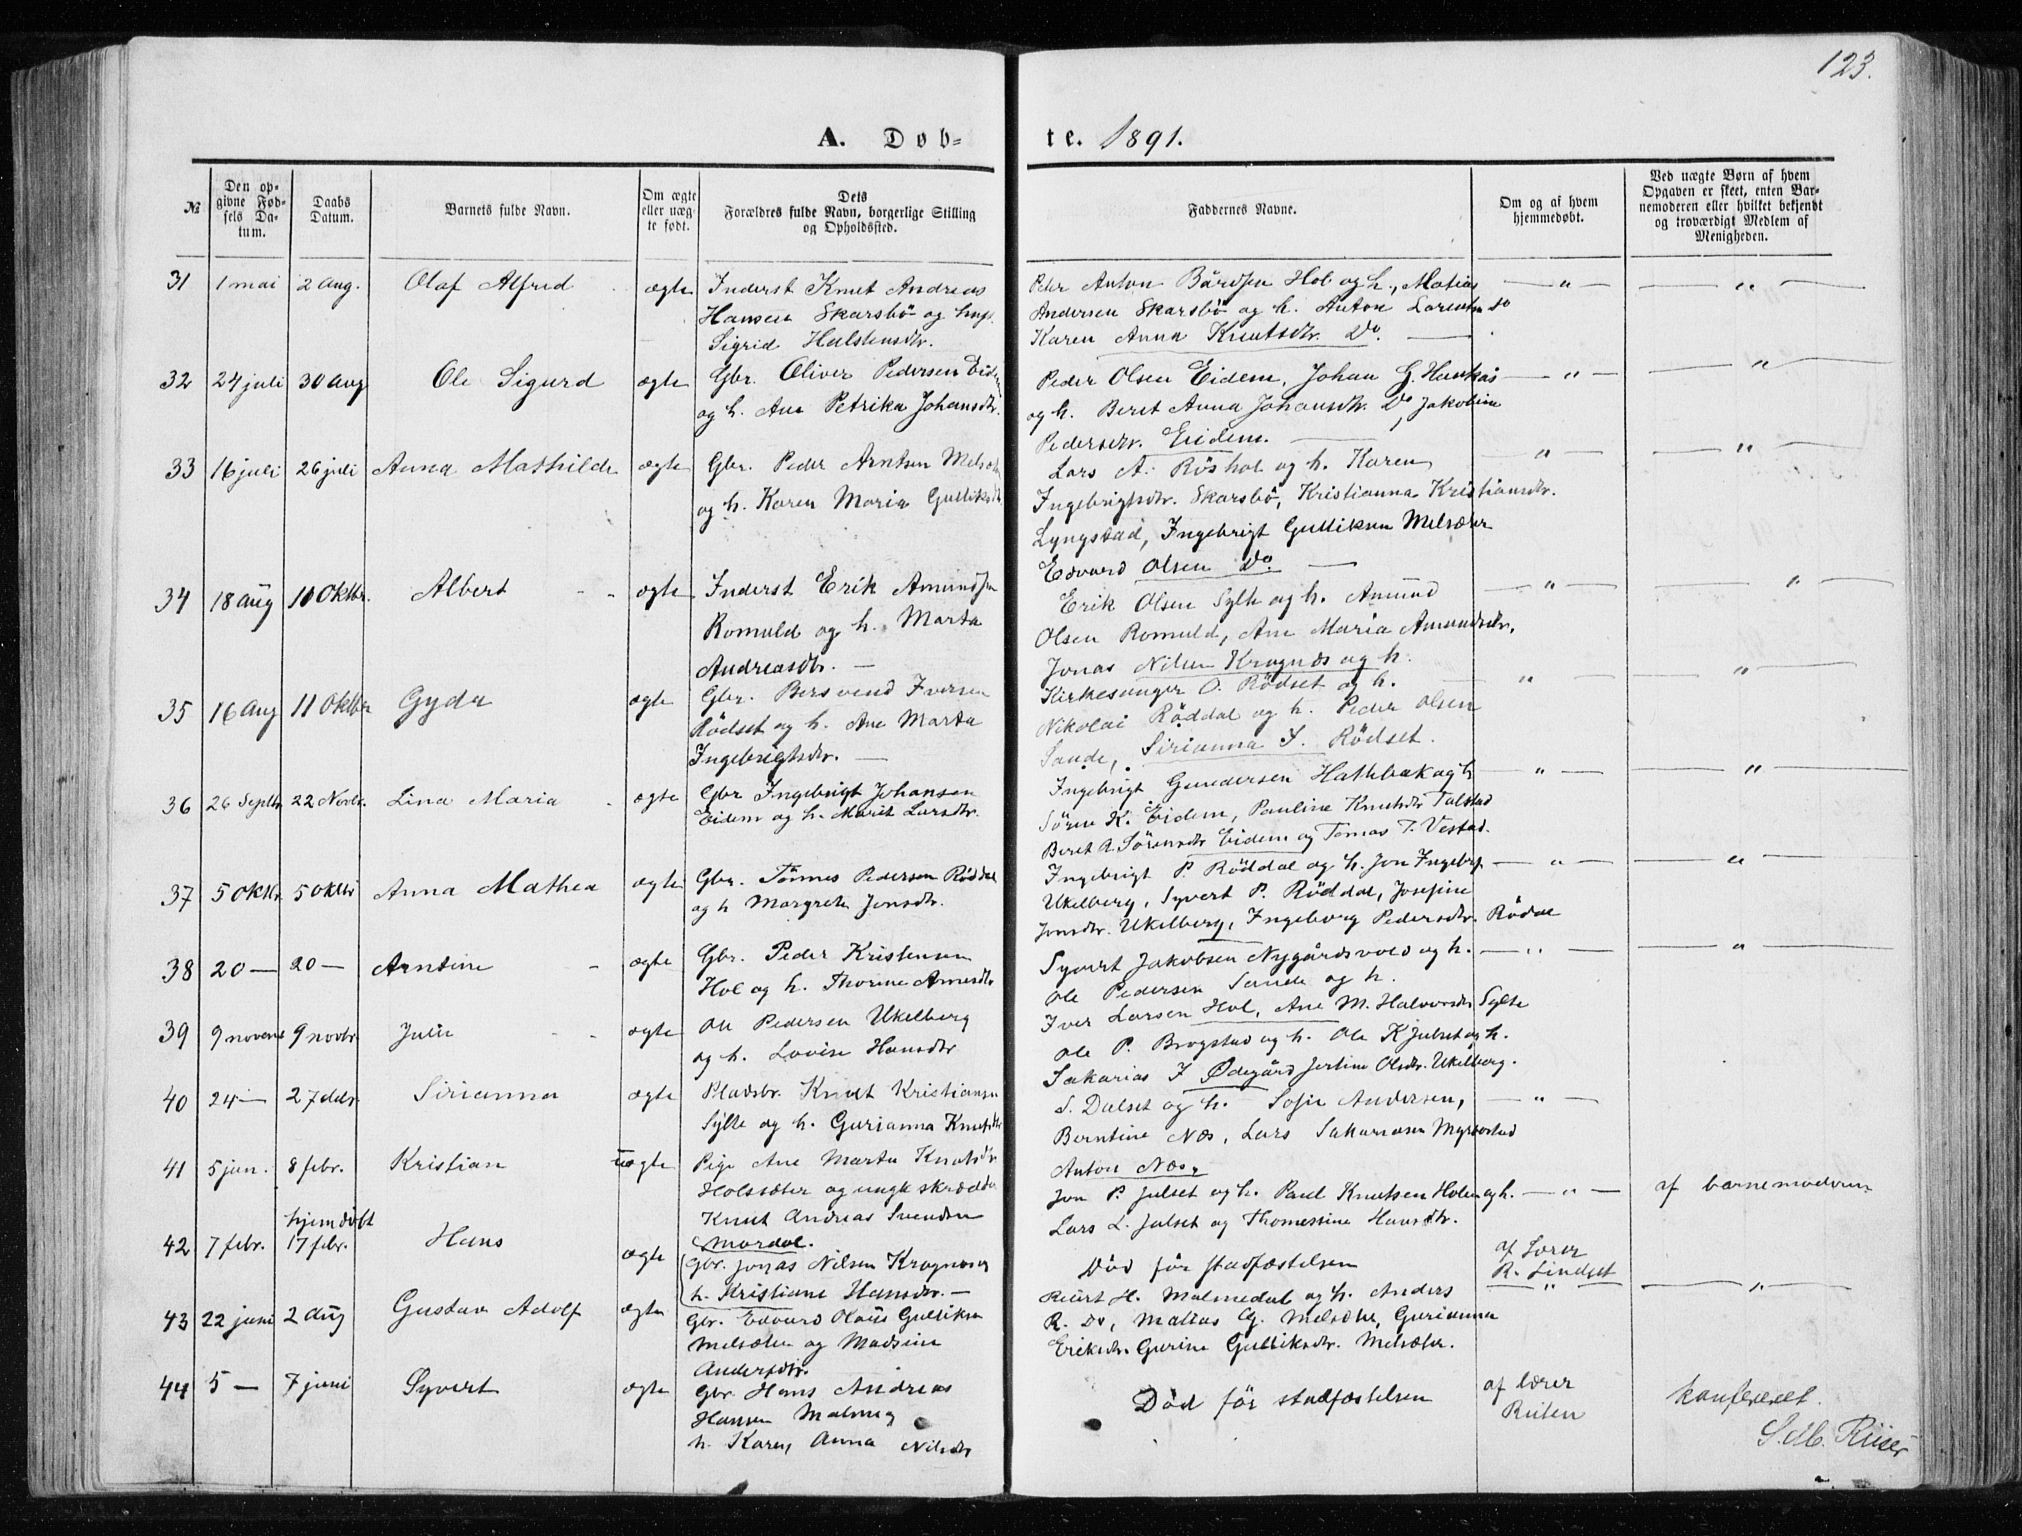 123.
A. Döb= te. 1891.
№
Den op-
givne Fød-
sels Da-
tum.
Daabs
Datum.
Barnets fulde Navn.
Om ægte
eller uæg-
te født.
Dets
Forældres fulde Navn, borgerlige Stilling
og Opholdssted.
Faddernes Navne.
Om og af hvem
hjemmedøbt.
Ved uægte Børn af hvem
Opgaven er skeet, enten Bar-
nemoderen eller hvilket bekjendt
og troværdigt Medlem af
Menigheden.
31 1 mai 2 aug. Olaf Alfred ægte Inderst Knut Andreas
Hansen Skarsbö og hus.
Sigrid Halstensdtr.
Peter Anton Bårdsen Hol og h., Matias — „ — — „ —
Andersen Skarsbö og h. Anton Lorentsen Do
Karen Anna Knutsdtr. Do. —
32 24 juli 30 aug Ole Sigurd ægte Gbr. Oliver Pedersen Eidem
og h. Ane Petrika Johansdtr.
Peder Olsen Eidem, Johan G. Haukås — „ — — „ —
og h. Beret Anna Johansdtr. Do, Jakobine
Pedersdtr. Eidem. —
33 16 juli 26 juli Anna Mathilde ægte Gbr. Peder Arntsen Melsæter
og h. Karen Maria Gulliksdtr
Lars A. Röshol og h. Karen — „ — — „ —
Ingebrigtsdtr. Skarsbö, Kristianna Kristiansdtr.
Lyngstad, Ingebrigt Gulliksen Melsæter
Edvard Olsen Do. —
34 18 aug 11 Oktbr. Albert ægte Inderst Erik Amundsen
Romuld og h. Marta
Andreasdtr. —
Erik Olsen Sylte og h. Amund — „ — — „ —
Olsen Romuld, Ane Maria Amundsdtr.
Jonas Nilsen Kragnæs og h.
35 16 aug 11 Oktbr Gyda ægte Gbr. Bersvend Iversen
Rödset og h. Ane Marta
Ingebrigtsdtr. —
Kirkesanger O. Rödset og h. — „ — — „ —
Nikolai Röddal og h. Peder Olsen
Sande, Sirianna I. Rödset.
36 26 Septbr 22 Novbr. Lina Maria ægte Gbr Ingebrigt Johansen
Eidem og h. Marit Larsdtr.
Ingebrigt Gundersen Hathbak og h — „ — — „ —
Sören K. Eidem, Pauline Knutsdtr Talstad
Beret A. Sörensdtr Eidem og Tomas T. Vestad.
37 5 Oktbr. 5 Oktbr Anna Mathea ægte Gbr. Tönnes Pedersen Röddal
og h Margrete Jonsdtr.
Ingebrigt P. Röddal og h. Jon Ingebr. — „ — — „ —
Ukelberg, Syvert P. Röddal, Josefine
Jonsdtr. Ukelberg, Ingeborg Pedersdtr. Rödal
38 20 — 20 — Arntine ægte Gbr. Peder Kristensen
Hol og h. Thorine Arnesdtr
Syvert Jakobsen Nygårdsvold og h. — „ — — „ —
Ole Pedersen Sande og h.
Iver Larsen Hol, Ane M. Halvorsdtr Sylte
39 9 novem 9 novbr. Julie ægte Ole Pedersen Ukelberg
og h. Lovise Hansdtr
Ole P. Brogstad og h. Ole K Julset og h.
Sakarias I Ødegård Jertine Olsdtr. Ukelberg.
40 24 — 27 debr. Sirianna ægte Pladsbr. Knut Kristiansen
Sylte og h. Gurianna Knutsdtr
S. Dalset og h. Sofie Andersen, — „ —
Berntine Næs, Lars Sakariasen Myrbostad
Anton Næs,
41 5 jan. 8 febr. Kristian uægte Pige Ane Marta Knutsdtr
Holsæter og ungk skrædder
Knut Andreas Svendsen
Mordal.
Jon P. Julset og h. Paul Knutsen Holen og h. — „ — af barnemoderen
Lars L. Julset og Thomessine Hansdtr.
42 7 febr. hjemdöbt
17 febr. Hans ægte Gbr. Jonas Nilsen Kragnæs og
h. Kristiane Hansdtr. —
Död för stadfæstelsen af Lærer
R. Lindset
43 22 juni 2 aug Gustav Adolf ægte Gbr. Edvard Olaus Gulliksen
Melsæter og Madsine
Andersdtr.
Reiert H. Malmedal og h. Anders — „ — — „ —
R. Do, Matias G. Melsæter, Gurianna
Eriksdtr. Gurine Gulliksdtr. Melsæter.
44 5 — 7 juni Syvert ægte Gbr. Hans Andreas
Hansen Malmeg
h. Karen Anna Nilsdtr
Död för stadfæstelsen af lærer
Reiten
konfereret.
S. M. Riiser